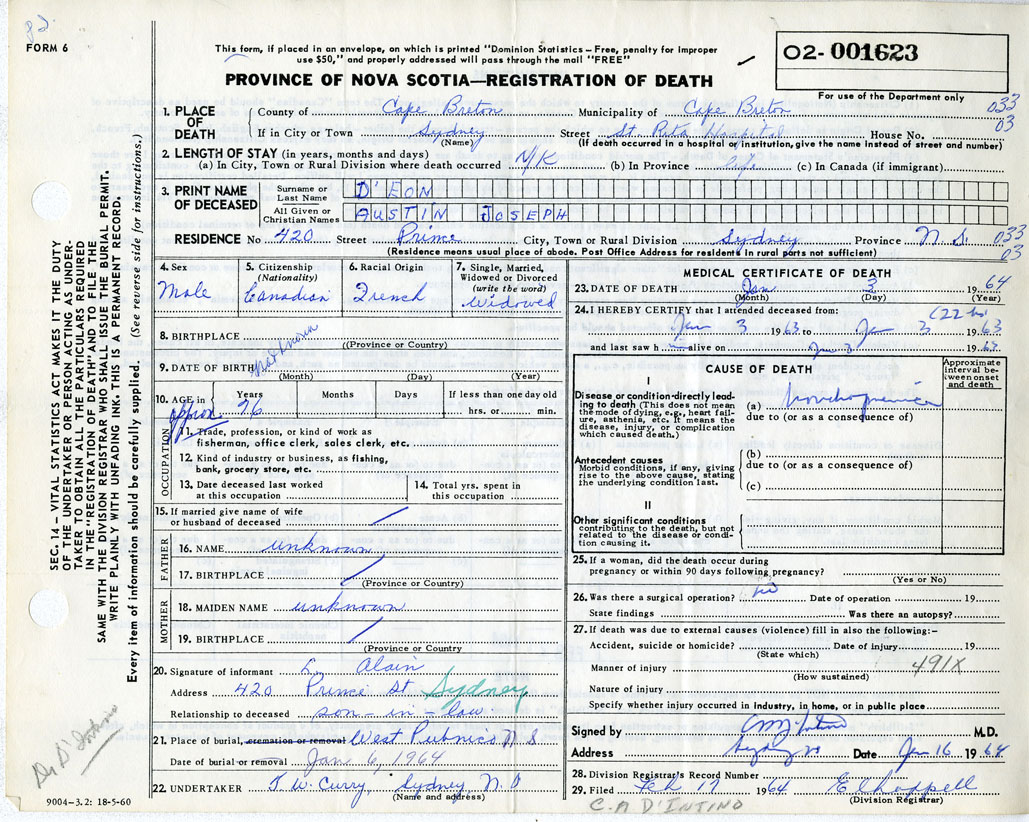 82
FORM 6
This form, if placed in an envelope, on which is printed "Dominion Statistics – Free, penalty for improper
use $50," and properly addressed will pass through the mail "FREE"
PROVINCE OF NOVA SCOTIA—REGISTRATION OF DEATH
02- 001623
For use of the Department only
1. PLACE OF DEATH { County of Cape Breton Municipality of Cape Breton 033
If in City or Town Sydney Street St Rita Hospital House No. 03
(Name) (If death occurred in a hospital or institution, give the name instead of street and number)
2. LENGTH OF STAY (in years, months and days)
(a) In City, Town or Rural Division where death occurred N/K (b) In Province Life (c) In Canada (if immigrant)
3. PRINT NAME OF DECEASED { Surname or Last Name D'EON
All Given or Christian Names AUSTIN JOSEPH
RESIDENCE No 420 Street Prince City, Town or Rural Division Sydney Province N.S. 033
03
(Residence means usual place of abode. Post Office Address for residents in rural parts not sufficient)
4. Sex Male
5. Citizenship (Nationality) Canadian
6. Racial Origin French
7. Single, Married, Widowed or Divorced (write the word) Widowed
8. BIRTHPLACE
((Province or Country)
9. DATE OF BIRTH not known
(Month) (Day) (Year)
10. AGE in { Years Months Days If less than one day old
approx. 76 hrs. or min.
OCCUPATION
11. Trade, profession, or kind of work as
fisherman, office clerk, sales clerk, etc.
12. Kind of industry or business, as fishing,
bank, grocery store, etc.
13. Date deceased last worked
at this occupation
14. Total yrs. spent in
this occupation
15. If married give name of wife
or husband of deceased
FATHER
16. NAME unknown
17. BIRTHPLACE
(Province or Country)
MOTHER
18. MAIDEN NAME unknown
19. BIRTHPLACE
(Province or Country)
20. Signature of informant L. Alain
Address 420 Prince St Sydney
Relationship to deceased son-in-law
21. Place of burial, cremation or removal West Pubnico N S
Date of burial or removal Jan 6, 1964
22. UNDERTAKER T. W. Curry, Sydney N.S
(Name and address)
9004-3.2: 18-5-60
Dr D'Intino
SEC. 14 – VITAL STATISTICS ACT MAKES IT THE DUTY
OF THE UNDERTAKER OR PERSON ACTING AS UNDER-
TAKER TO OBTAIN ALL THE PARTICULARS REQUIRED
IN THE "REGISTRATION OF DEATH" AND TO FILE THE
SAME WITH THE DIVISION REGISTRAR WHO SHALL ISSUE THE BURIAL PERMIT.
WRITE PLAINLY WITH UNFADING INK. THIS IS A PERMANENT RECORD.
Every item of information should be carefully supplied. (See reverse side for instructions.)
MEDICAL CERTIFICATE OF DEATH
23. DATE OF DEATH Jan 3 1964
(Month) (Day) (Year)
24. I HEREBY CERTIFY that I attended deceased from: (22 hr)
Jan 3 1963 to Jan 3 1963
and last saw h alive on Jan 3 1963
CAUSE OF DEATH
Approximate interval between onset and death
I
Disease or condition directly lead-
ing to death (This does not mean
the mode of dying, e.g., heart fail-
ure, asthenia, etc. It means the
disease, injury, or complication
which caused death.)
(a) bronchopneumonia
due to (or as a consequence of)
Antecedent causes
Morbid conditions, if any, giving
rise to the above cause, stating
the underlying condition last.
(b)
due to (or as a consequence of)
(c)
II
Other significant conditions
contributing to the death, but not
related to the disease or condi-
tion causing it.
25. If a woman, did the death occur during
pregnancy or within 90 days following pregnancy?
(Yes or No)
26. Was there a surgical operation? no Date of operation 19
State findings Was there an autopsy?
27. If death was due to external causes (violence) fill in also the following:–
Accident, suicide or homicide? Date of injury 19
(State which)
Manner of injury 491X
(How sustained)
Nature of injury
Specify whether injury occurred in industry, in home, or in public place
Signed by M.D.
Address Sydney NS Date Jan 16 1964
28. Division Registrar's Record Number
29. Filed Feb 17 1964 E Chappell
(Division Registrar)
C. A D'INTINO